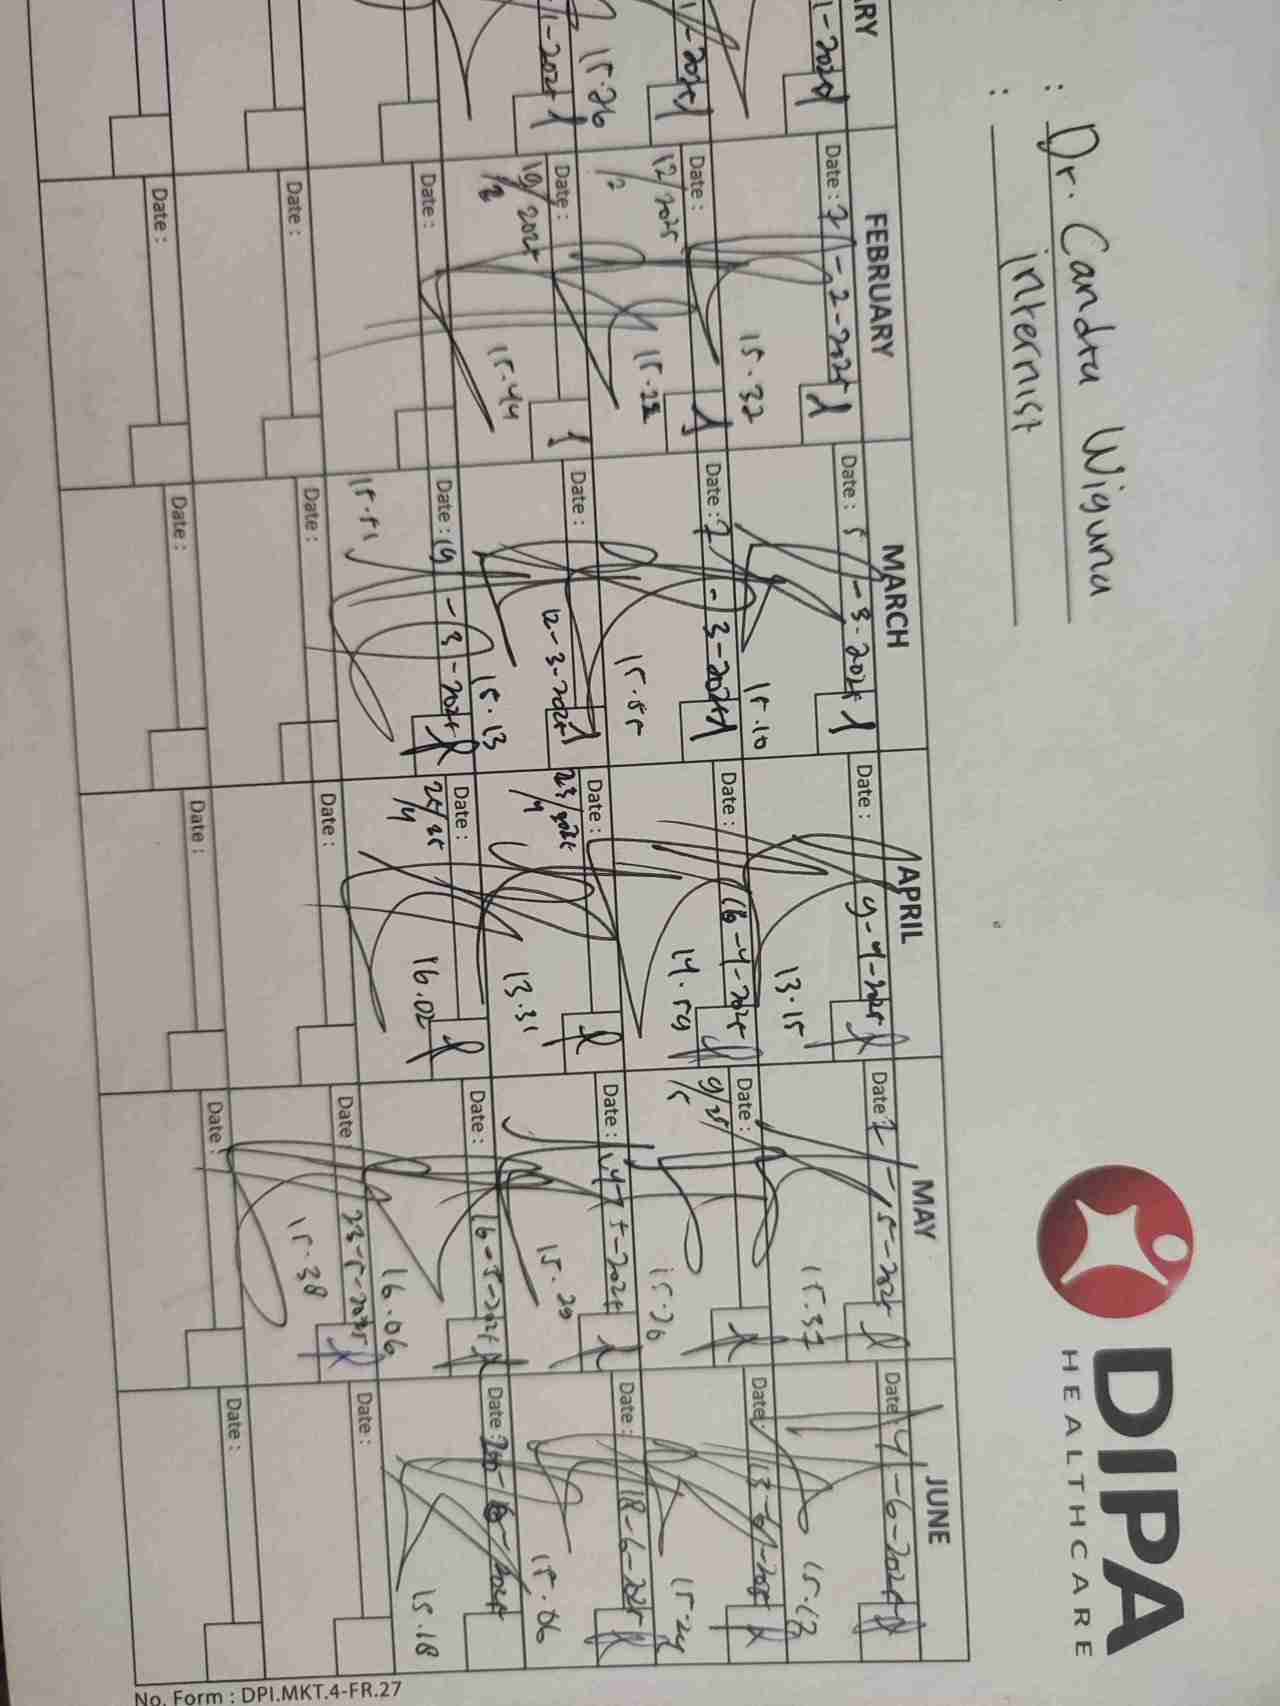 : Dr. Candra Wiguna
: internist
DIPA
HEALTHCARE
FEBRUARY
MARCH
APRIL
MAY
JUNE
Date : 7-2-2025
15.32
Date : 5-3-2025
15.10
Date : 9-4-2025
13.15
Date : 7-5-2025
15.37
Date : 4-6-2025
15.13
Date : 12/2025
/2
Date : 7-3-2025
15.55
Date : 16-4-2025
14.59
Date : 9/25
/5
15.20
Date : 13-6-2025
15.24
15.26
Date : 19/2025
/2
15.44
Date : 12-3-2025
15.13
Date : 23/2025
/4
13.31
Date : 14-5-2025
15.29
Date : 18-6-2025
15.06
Date :
Date : 19-3-2025
Date : 25/25
/4
16.02
Date : 16-5-2025
16.06
Date : 20-6-2025
15.18
Date :
Date :
Date :
Date : 23-5-2025
15.38
Date :
Date :
Date :
Date :
Date :
Date :
No. Form : DPI.MKT.4-FR.27